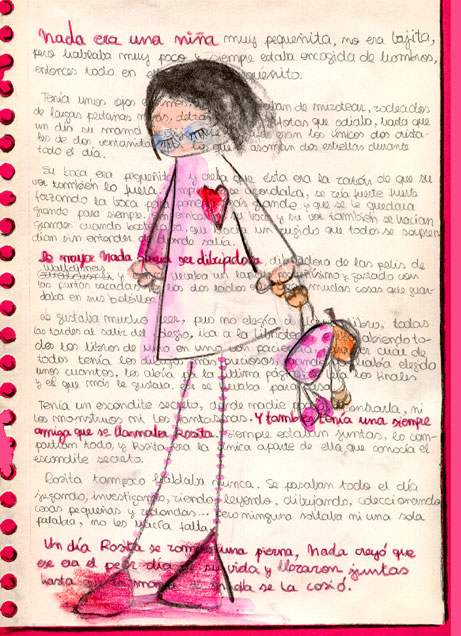 Nada era una niña muy pequeñita, no era bajita,
pero hablaba muy poco y siempre estaba encogida de hombros,
entonces todo en ella pequeñito.
Tenía unos ojos de mirotear, rodeados
de largas pestañas detrás que odiaba, hasta que
un día su mamá eran los únicos dos crista-
les de dos ventanitas las que se asoman dos estrellas durante
todo el día.
Su boca era pequeñita y creía que ésta era la razón de que su
voz también lo fuera, se reía fuerte fuerte
forzando la boca para grande, y que se le quedara
grande para siempre, su boca y su voz también se hacían
grandes cuando que hacía un rugido que todos se sorpren-
dían sin entender de dónde salía.
De mayor Nada quería ser dibujadora, dibujadora de las pelis de
y llevaba un lápiz pequeñísimo y gastado con
las puntas sacadas a los dos lados muchas cosas que guar-
daba en sus bolsillos.
Le gustaba mucho leer, pero no elegía libro, todas
las tardes al salir del colegio, iba a la librería abriendo to-
dos los libros de uno en uno cuál de
todos tenía los dibujos preciosos, cuando había elegido
unos cuantos, los abría por la última página los finales
y el que más le gustaba, se lo llevaba
Tenía un escondite secreto, donde nadie podía encontrarla, ni
los monstruos ni los fantasmas. Y también tenía una siempre
amiga que se llamaba Rosita, siempre estaban juntas, lo com-
partían todo, y Rosita era la única aparte de ella que conocía el
escondite secreto.
Rosita tampoco hablaba nunca. Se pasaban todo el día
jugando, investigando, riendo, leyendo, dibujando, coleccionando
cosas pequeñas y redondas... pero ninguna soltaba ni una sola
palabra, no les hacía falta.
Un día Rosita se rompió una pierna, Nada creyó que
ese era el peor día de su vida y lloraron juntas
hasta que la mamá de Nada se la cosió.